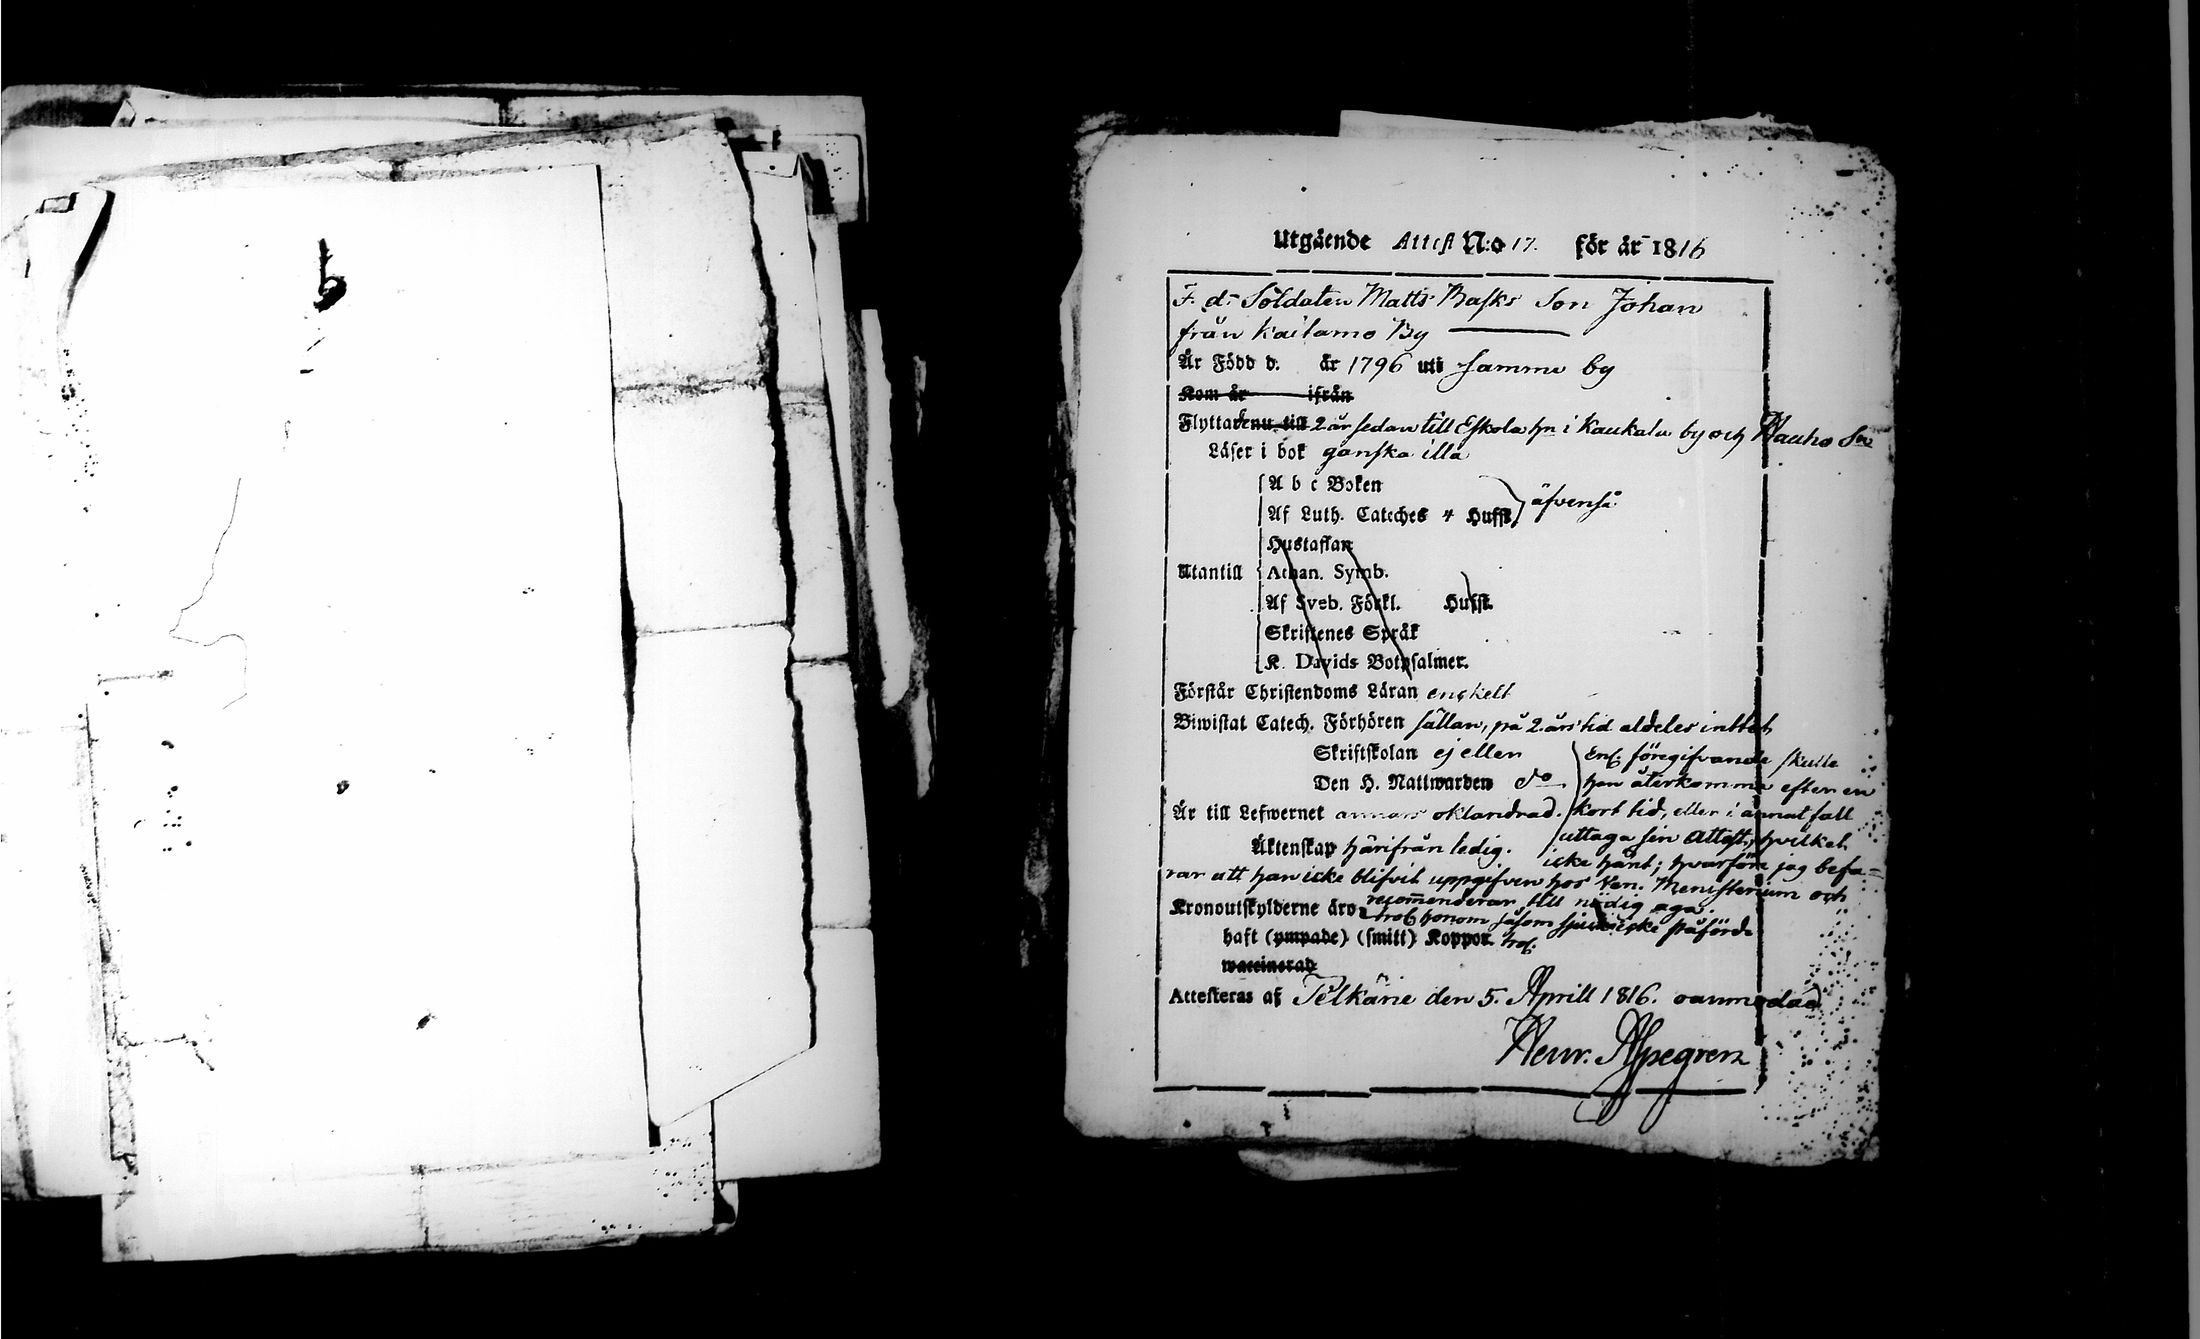 Utgående Attest N:o 17. för år 1816
F. d. Soldaten Matts Rasks Son Johan
från Kailamo By
Är Född d. år 1796 uti samma by
Kom år ifrån
Flyttade nu till 2 år sedan till Eskola hn i Kaukala by och Hauho Sn
Läser i bok ganska illa
A b c Boken
Af Luth. Cateches 4 Hufst. äfvenså
Hustaflan
Utantill Athan. Symb.
Af Sveb. Förkl. Hufst.
Skriftenes Språk
K. Davids Botpsalmer.
Förstår Christendoms Läran enskelt
Biwistat Catech. Förhören sällan, på 2 års tid aldeles inttet
Skriftskolan ej eller
Den H. Nattwarden do
Enl. föregifvande skulle
han återkomma efter en
Är till Lefwernet annars oklandrad. kort tid, eller i annat fall
uttaga sin Attest, hvilket
Äktenskap härifrån ledig.
icke händt; hvarföre jag befa=
rar att han icke blifvit uppgifven hos Ven. Ministerium och
recommenderar till nödig aga.
Kronoutskylderne äro honom såsom icke påförde
haft (ympade) (smitt) Koppor.
waccinerad
Attesteras af Pelkäne den 5. Aprill 1816.
Henr. Aspegren